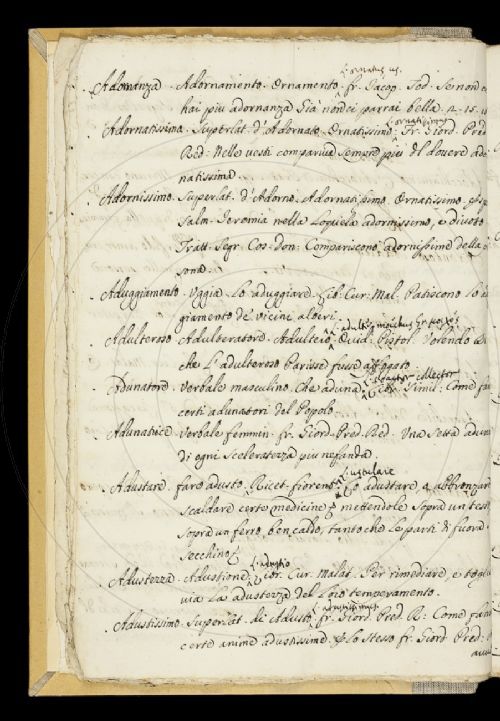 L. ornatus us.
Adornanza. Adornamento. Ornamento. fr. Jacop. Tod. Se non
hai piu adornanza Gia non ci parrai bella. 2. 15. 11
L. ornatissimus
Adornatissimo. Superlat. d'Adornato. Ornatissimo. Fr. Giord. Pred.
Red. Nelle vesti compariva sempre piu del dovere ador
natissima.
Adornissimo. Superlat. d'Adorno. Adornatissimo. Ornatissimo.
Salm. Jeromia nella Loquela adornissimo, e divoto
Tratt. Segr. Cos. Don. Compariscono adornissime della
sona.
Aduggiamento. Uggia. Lo aduggiare. Lib. Cur. Mal. Patiscono lo ad
giamento de' vicini alberi.
L. adulter moechus
Adulteroso. Adulteratore. Adultero. Ovid. Pistol. Volendo
che l'adulteroso Parisse fusse affogato
L. coactor collector
Adunatore. Verbale masculino. Che aduna. Simil. Come fan
certi adunatori del Popolo
Adunatrice. Verbale femmin. fr. Giord. Pred. Red. Una Setta aduna
di ogni Sceleratezza piu nefanda.
L. ustulare
Adustare. fare adusto. Ricet. fiorent. Lo adustare, o abbronzare
scaldare certe medicine, mettendole sopra un test
sopra un ferro, ben caldo, tanto che le parti di fuora
secchino
L. adustio
Adustezza. Adustione. Lib. Cur. Malat. Per rimediare, e toglie
via la adustezza del loro temperamento.
L. adustissimus
Adustissimo. Superlat. di Adusto. fr. Giord. Pred. R. Come fan
certe anime adustissime. Lo stesso fr. Giord. Pred.